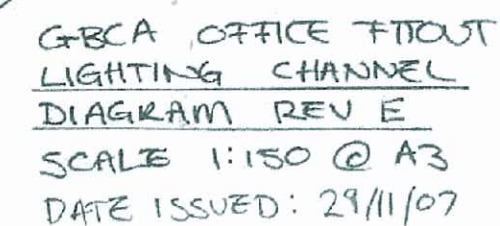 GBCA OFFICE FITOUT
LIGHTING CHANNEL
DIAGRAM REV E
SCALE 1:150 @ A3
DATE ISSUED: 29/11/07